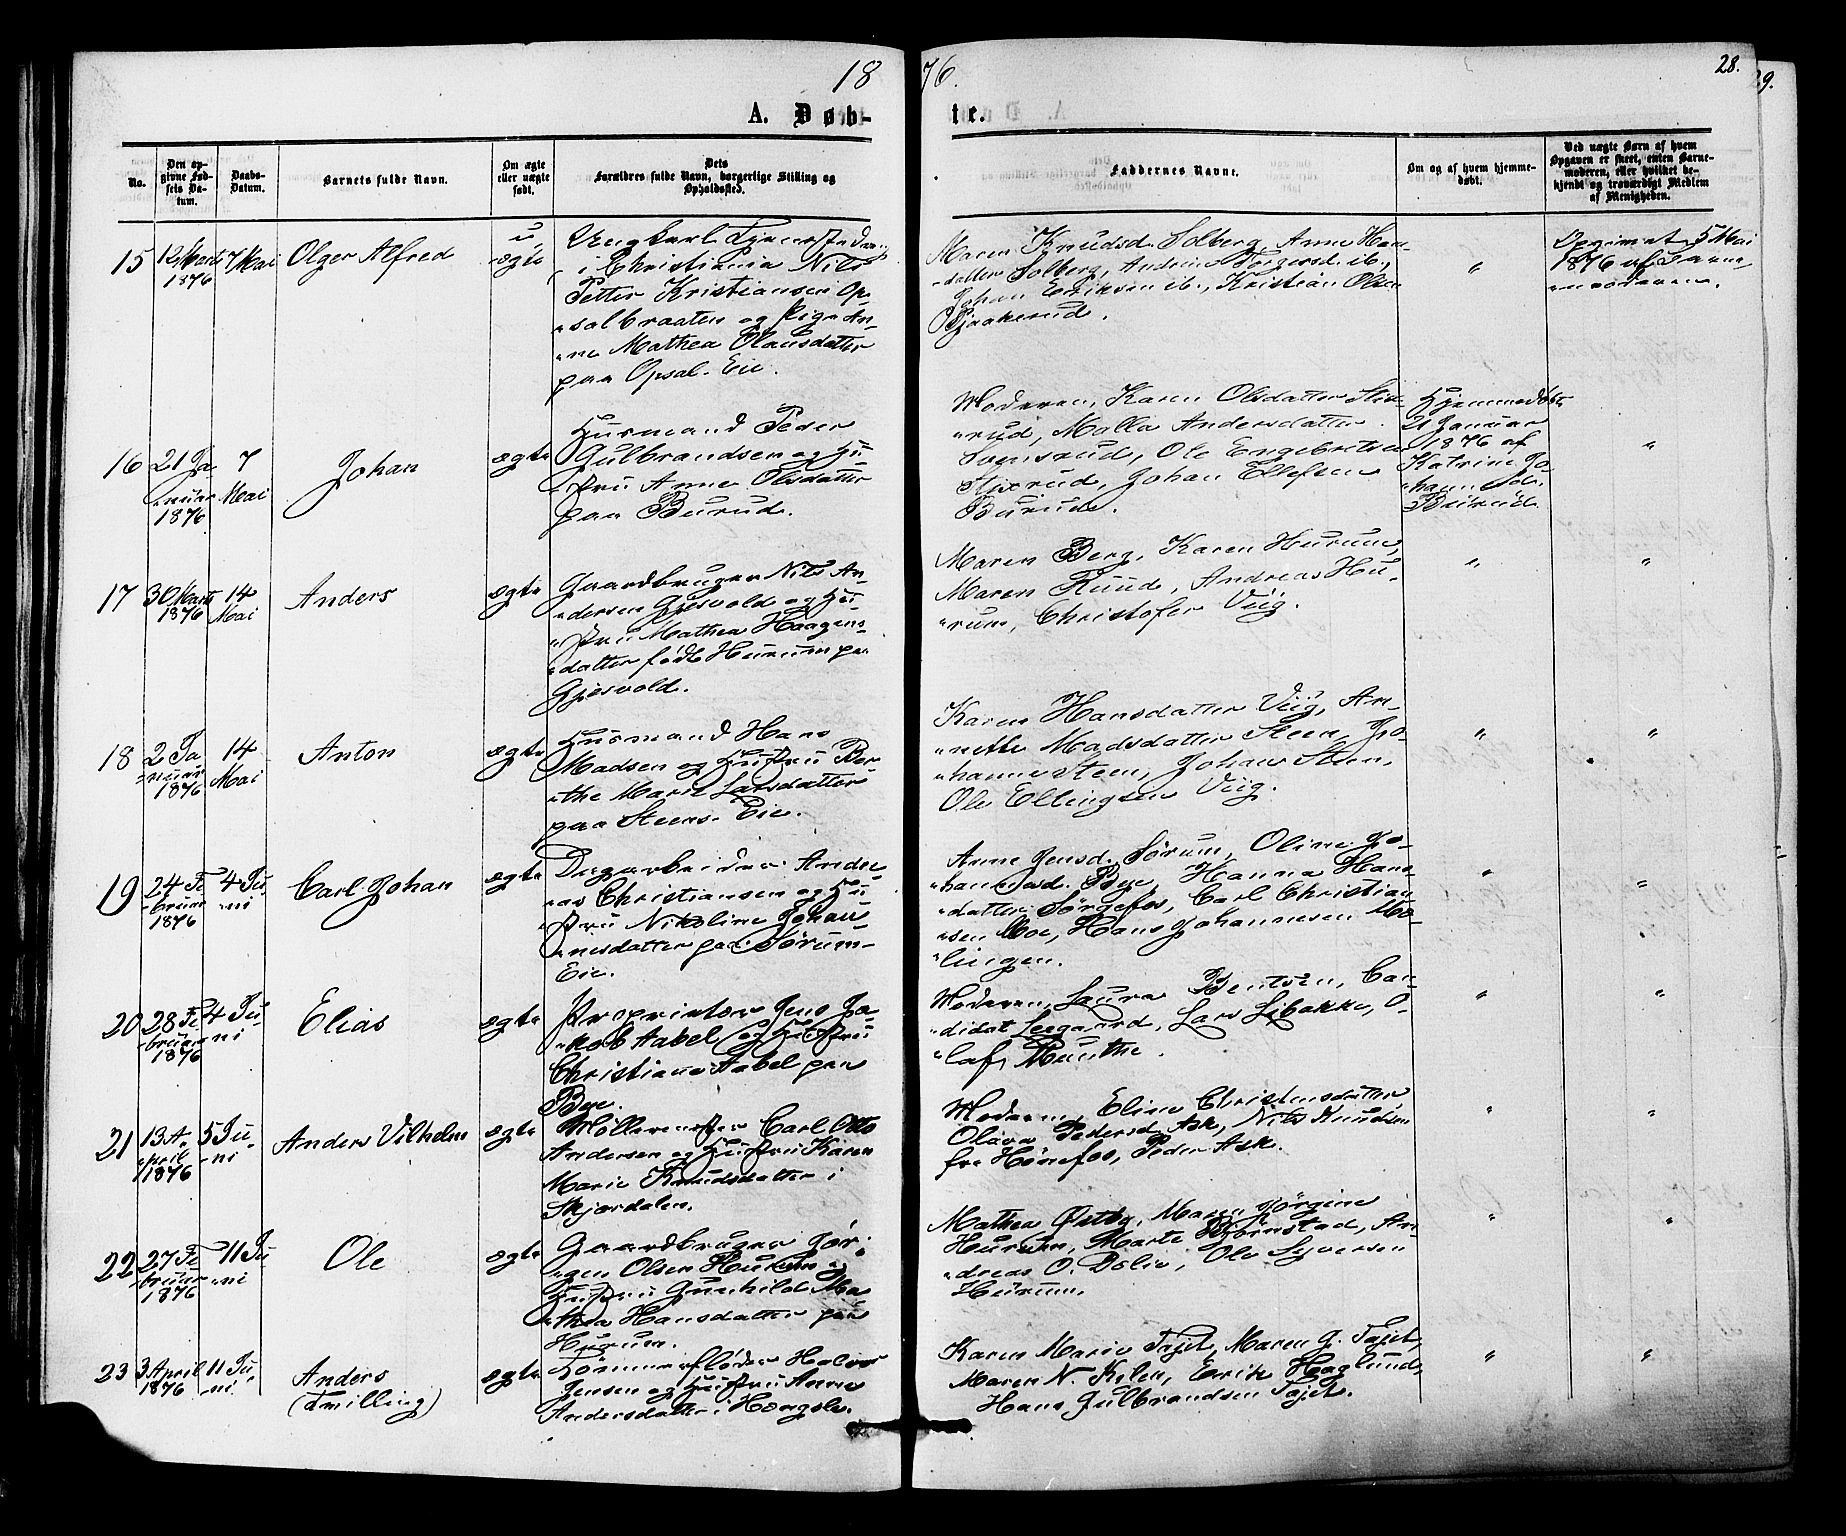 1876.
28.
29.
A. Døbte.
No.
Den opgivne Fødsels Datum.
Daabs-Datum.
Barnets fulde Navn.
Om ægte eller uægte født.
Dets Forældres fulde Navn, borgerlige Stilling og Opholdssted.
Faddernes Navne.
Om og af hvem hjemmedøbt.
Ved uægte Børn af hvem Opgaven er skeet, enten Barnemoderen, eller hvilket bekjendt og troværdigt Medlem af Menigheden.
15
12 Marts
1876
7 Mai
Olger Alfred
u,
ægte
Ungkarl
i Christiania Nils
Petter Kristiansen Op-
salbraaten og Pige An-
ne Mathea Olausdatter
paa Opsal-Eie.
Maren Knudsd. Solberg, Anne Han-
datter Solberg, Andrine Torgersd. ib.,
Johan Eriksen ib., Kristian Olsen
Bjaakerud.
"
Opgivet 5 Mai
1876 af Barne-
moderen.
16
21 Ja-
nuar
1876
7
Mai
Johan
ægte
Husmand Peder
Gulbrandsen og Hu-
stru Anne Olsdatter
paa Burud.
Moderen, Karen Olsdatter Stix-
rud, Malla Andersdatter
Svensrud, Ole Engebretsen
Stixrud, Johan Ellefsen
Burud.
Hjemmedøbt
21 Januar
1876 af
Katrine Jo-
hannesd.
Burud
"
17
30 Marts
1876
14
Mai
Anders
ægte
Gaardbruger Nils An-
dersen Gjesvold og Hu-
stru Mathea Haagens-
datter født Hurum paa
Gjesvold.
Maren Berg, Karen Hurum,
Maren Ruud, Andreas Hu-
rum, Christofer Viig.
"
"
18
2 Ja-
nuar
1876
14
Mai
Anton
ægte
Husmand Hans
Madsen og Hustru Ber-
the Marie Larsdatter
paa Steens-Eie.
Karen Hansdatter Viig, An-
nette Madsdatter Steen, Jo-
hanne Steen, Johan Steen,
Ole Ellingsen Viig.
"
"
19
24 Fe-
bruar
1876
4 Ju-
ni
Carl Johan
ægte
Dagarbeider Andre-
as Christiansen og Hu-
stru Nikoline Johan-
nesdatter paa Sørum-
Eie.
Anne Jensd. Sørum, Oline Jo-
hannesd. Bye, Hanna Hans-
datter Sørgefos, Carl Christian-
sen Moe, Hans Johannesen Mo-
lingen.
"
"
20
28 Fe-
bruar
1876
4 Ju-
ni
Elias
ægte
Proprietær Jens Ja-
kob Aabel og Hustru
Christiane Aabel paa
Bye.
Moderen, Laura Bentsen, Can-
didat Leegaard, Lars Libakke, O-
laf Munthe.
"
"
21
13 A-
pril
1876
5 Ju-
ni
Anders Vilhelm
ægte
Møllermester Carl Otto
Andersen og Hustru Karen
Marie Knudsdatter i
Skjørdalen.
Moderen, Eline Christensdatter
Olava Pedersd. Ask, Nils Knudsen
fra Hønefos, Peder Ask.
"
"
22
27 Fe-
bruar
1876
11 Ju-
ni
Ole
ægte
Gaardbruger Jør-
gen Olsen Hurum og
Hustru Gunhild Ma-
thea Hansdatter paa
Hurum.
Mathea Østby, Maren Jørgine
Hurum, Marte Bjørnstad, An-
dreas O. Dølie, Ole Syversen
Hurum.
"
"
23
3 April
1876
11 Ju-
ni
Anders
(Tvilling)
ægte
Tømmerfløder Halvor
Jensen og Hustru Anne
Andersdatter i Hængsle.
Karen Marie Tajet, Maren G. Tajet,
Maren N. Kilen, Erik Haglund,
Hans Gulbrandsen Tajet.
"
"